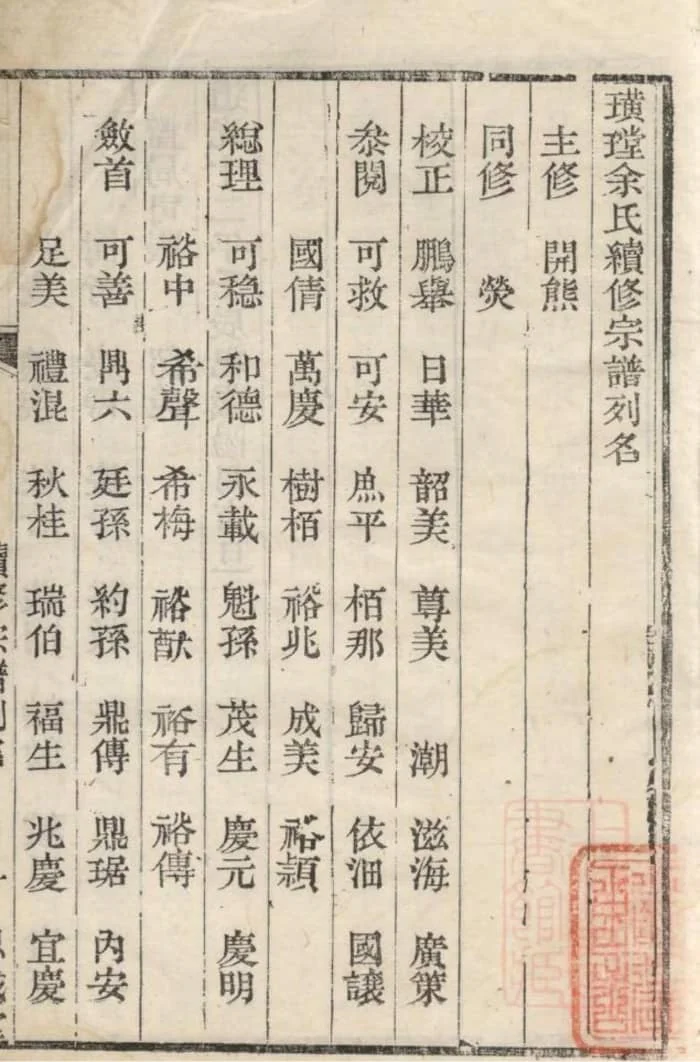 璜瑝余氏續修宗譜列名
主修 開熊
同修 熒
校正 鵬舉 日華 韶美 尊美 潮 滋海 廣策
叅閱 可救 可安 庶平 栢那 歸安 依沺 國讓
國倩 萬慶 樹栢 裕兆 成美 裕頴
緫理 可穏 和德 永載 魁孫 茂生 慶元 慶明
裕中 希聲 希梅 裕猷 裕有 裕傳
斂首 可善 門六 廷孫 約孫 鼎傳 鼎琚 內安
足美 禮混 秋桂 瑞伯 福生 兆慶 宜慶
續修宗譜列名